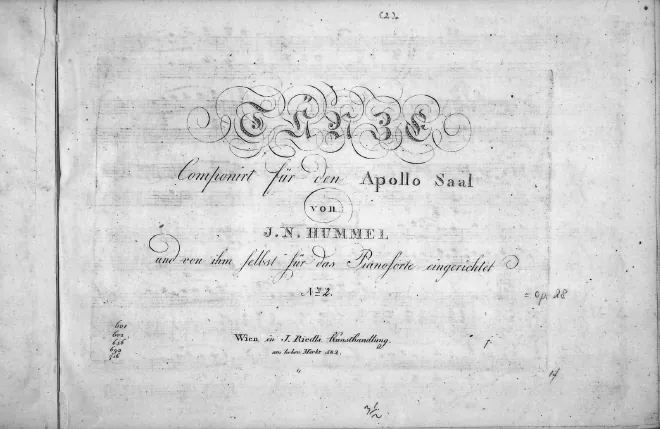 (2).
TÄNZE
Componirt für den Apollo Saal
von
J. N. HUMMEL
und von ihm selbst für das Pianoforte eingerichtet
No. 2.
= Op. 28
Wien in J. Riedls Kunsthandlung
am hohen Markt 582.
601
602